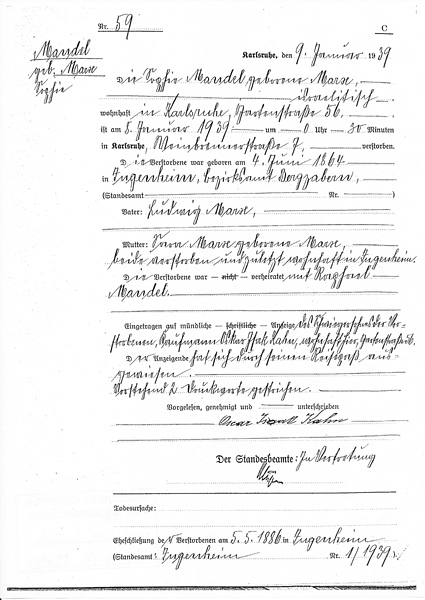 Nr. 59
C
Mandel
geb. Marx
Sophie
Karlsruhe, den 9. Januar 1939
Die Sophie Mandel geborene Marx,
israelitisch
wohnhaft in Karlsruhe, Gartenstraße 56
ist am 8. Januar 1939 um 0 Uhr 30 Minuten
in Karlsruhe, Weinbrennerstraße 7, verstorben.
Die Verstorbene war geboren am 4. Juni 1864
in Ingenheim, Bezirksamt Bergzabern,
(Standesamt Nr. )
Vater: Ludwig Marx,
Mutter: Sara Marx geborene Marx,
beide verstorben und zuletzt wohnhaft in Ingenheim.
Die Verstorbene war — nicht — verheiratet mit Raphael
Mandel.
Eingetragen auf mündliche — schriftliche — Anzeige des Schwiegersohns der Ver-
storbenen, Kaufmann Oskar Kahn, wohnhaft hier, Gartenstraße
Der Anzeigende hat sich durch seinen Reisepaß aus-
gewiesen.
Vorstehend 2 Druckworte gestrichen.
Vorgelesen, genehmigt und unterschrieben
Oscar Kahn
Der Standesbeamte: In Vertretung
Todesursache:
Eheschließung der Verstorbenen am 5.5.1886 in Ingenheim
(Standesamt: Ingenheim Nr. 1/1939)